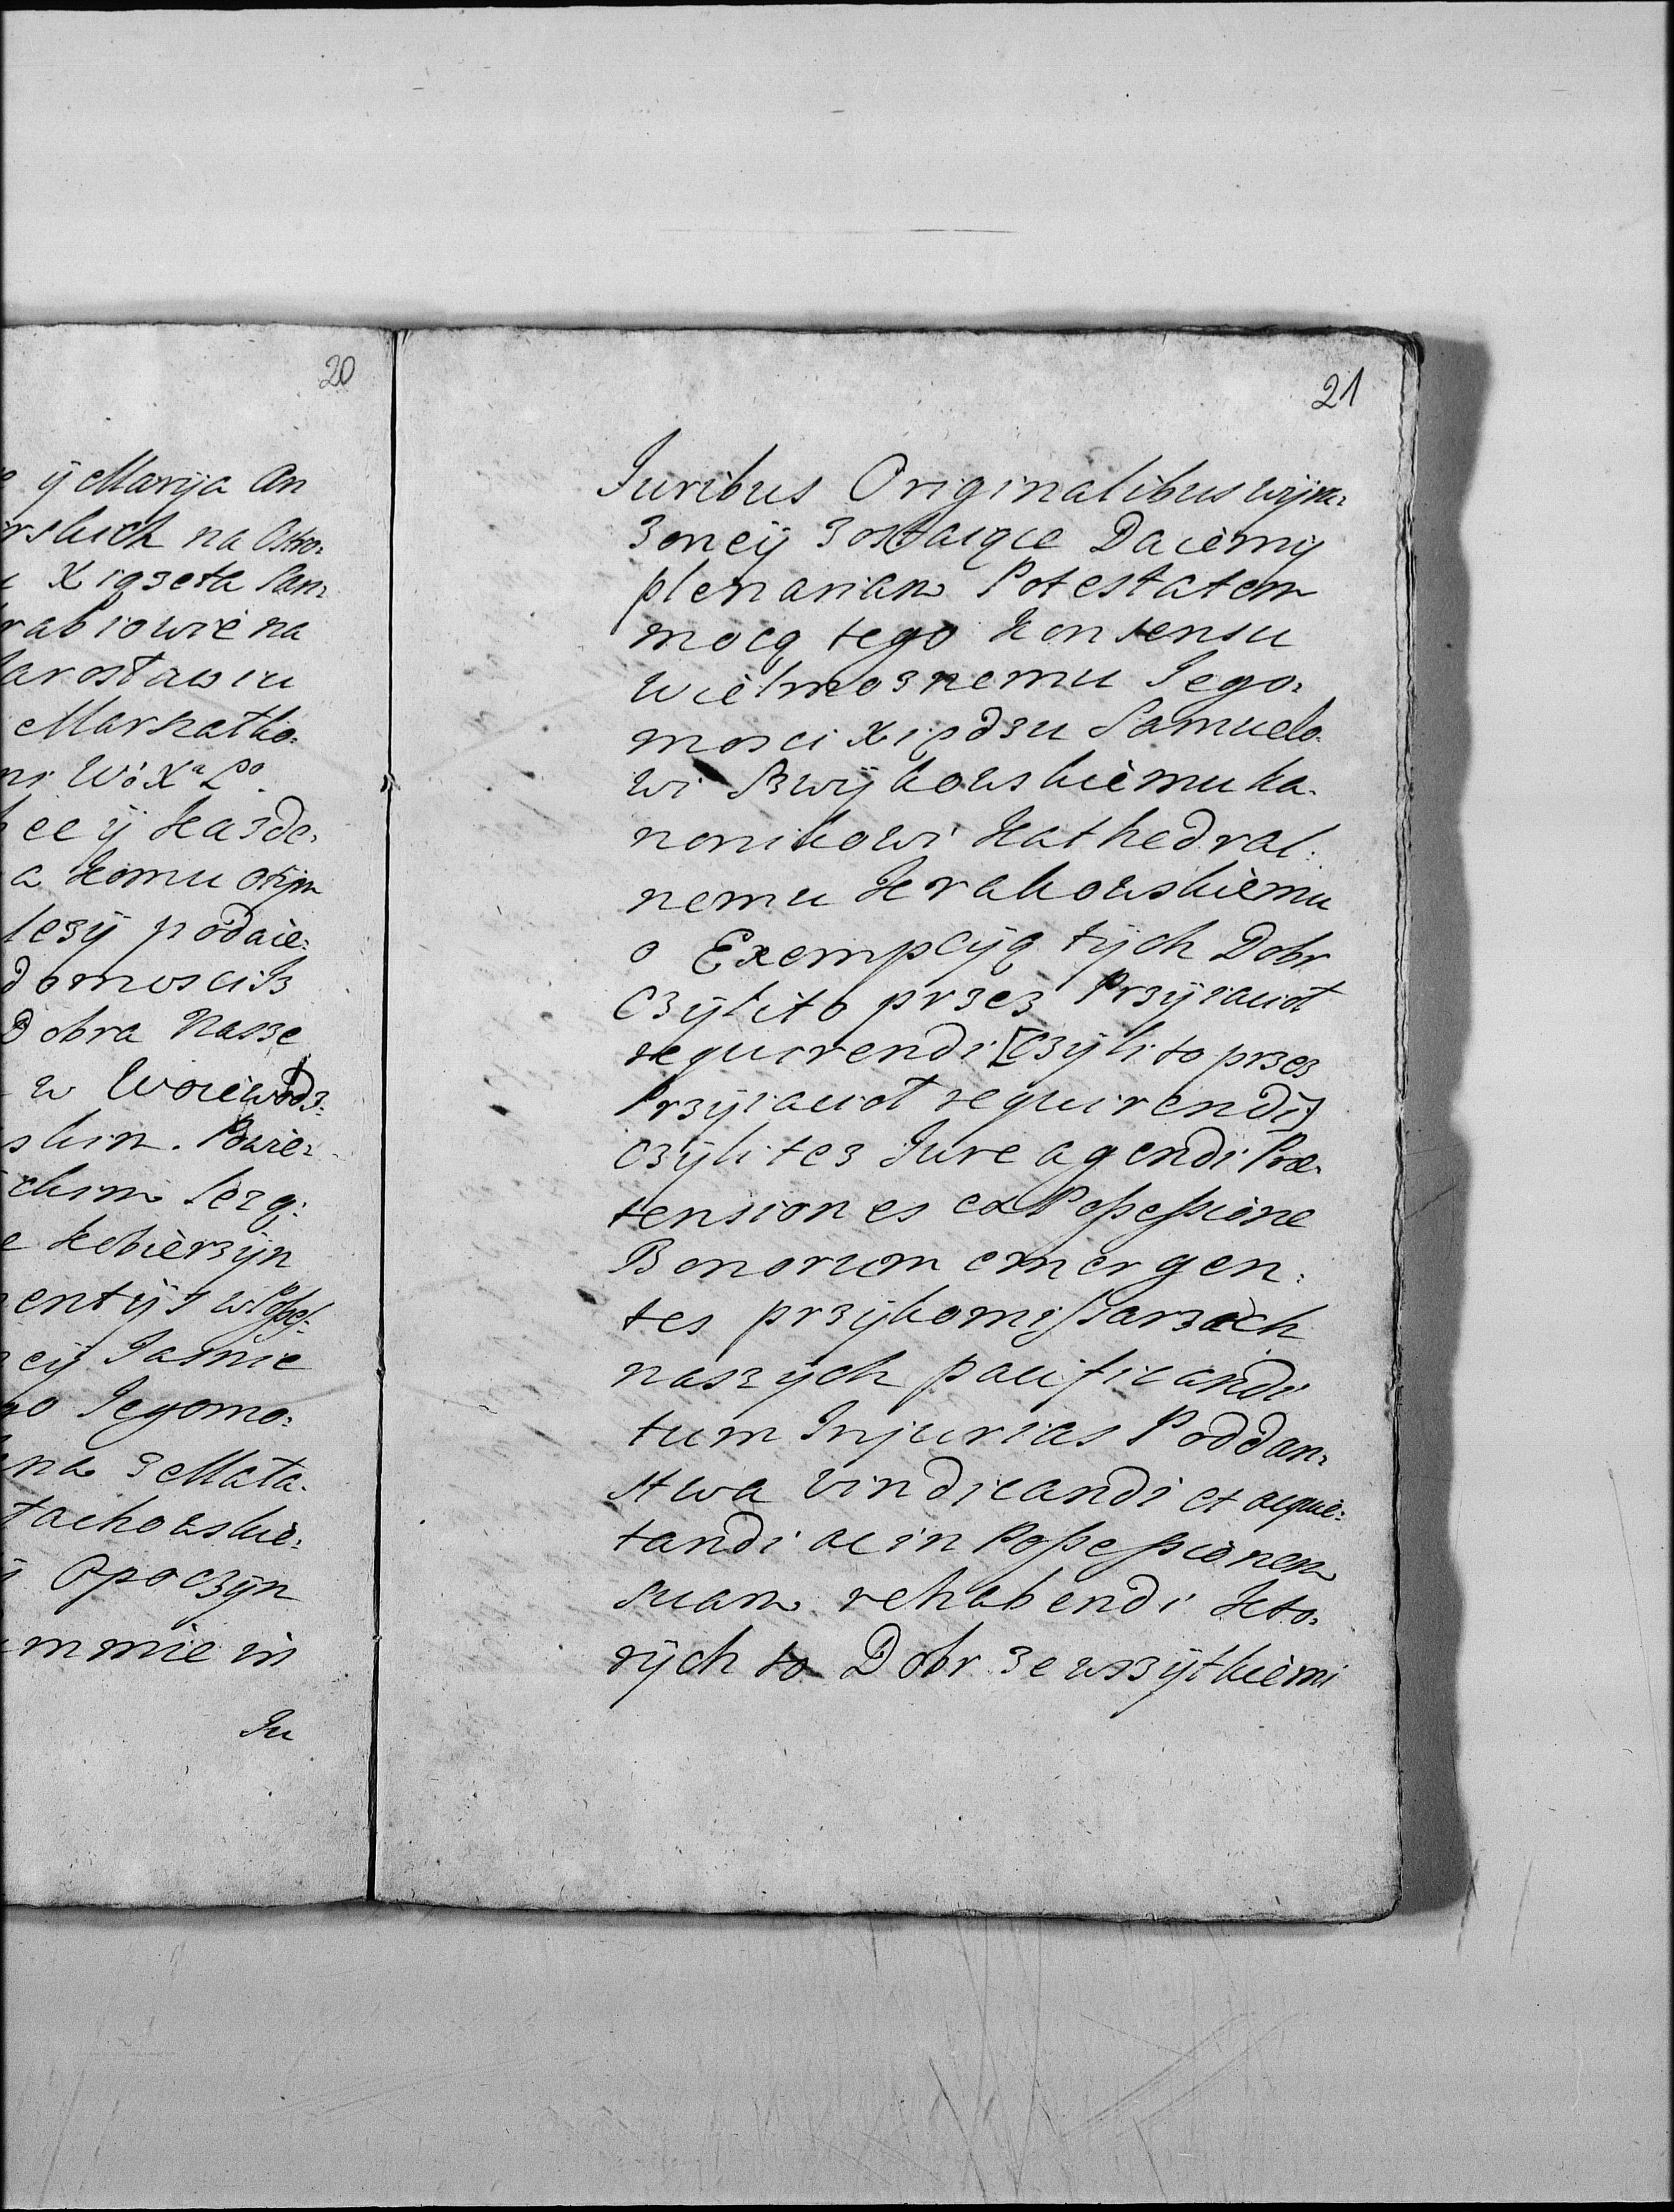 20
ÿ Marÿa An
rskich na Ostro:
Xiązeta San
rabiowie na
Jarosławiu
Marszałko:
ni W: X^a L^o.
eeÿ Kazde,
a komu otÿm
lezÿ podaie:
domosci Jz
Dobra Nasze
w Woiewodz:
skim. Powie:
ckim lezą:
Kobierzÿn
entÿs w Posses:
eÿ Jasnie
go Jegomo:
na z Mała.
łachowskie:
Opoczÿn
mmie in
Ju
21
Juribus Originalibus wÿra:
zoneÿ zostaiące Daiemÿ
plenariam Potestatem
mocą tego Konsensu
Wielmoznemu Jego:
mosci Xiędzu Samuelo.
wi Szwÿkowskiemu Ka.
nonikowi Kathedral:
nemu Krakowskiemu
o Exempcÿą tÿch Dobr
Czÿlito przez Przÿiaciół
requirendi [Czÿli to przez
Przÿiaciół requirendi]
czÿli tez Jure agendi Præ.
tensiones ex Possessione
Bonorum emergen:
tes przÿ komissarzach
naszÿch pacificandi
tum Injurias Poddan:
stwa vindicandi et acquie:
tandi ac in Possessionem
suam rehabendi Kto:
rÿch to Dobr ze wszÿtkiemi